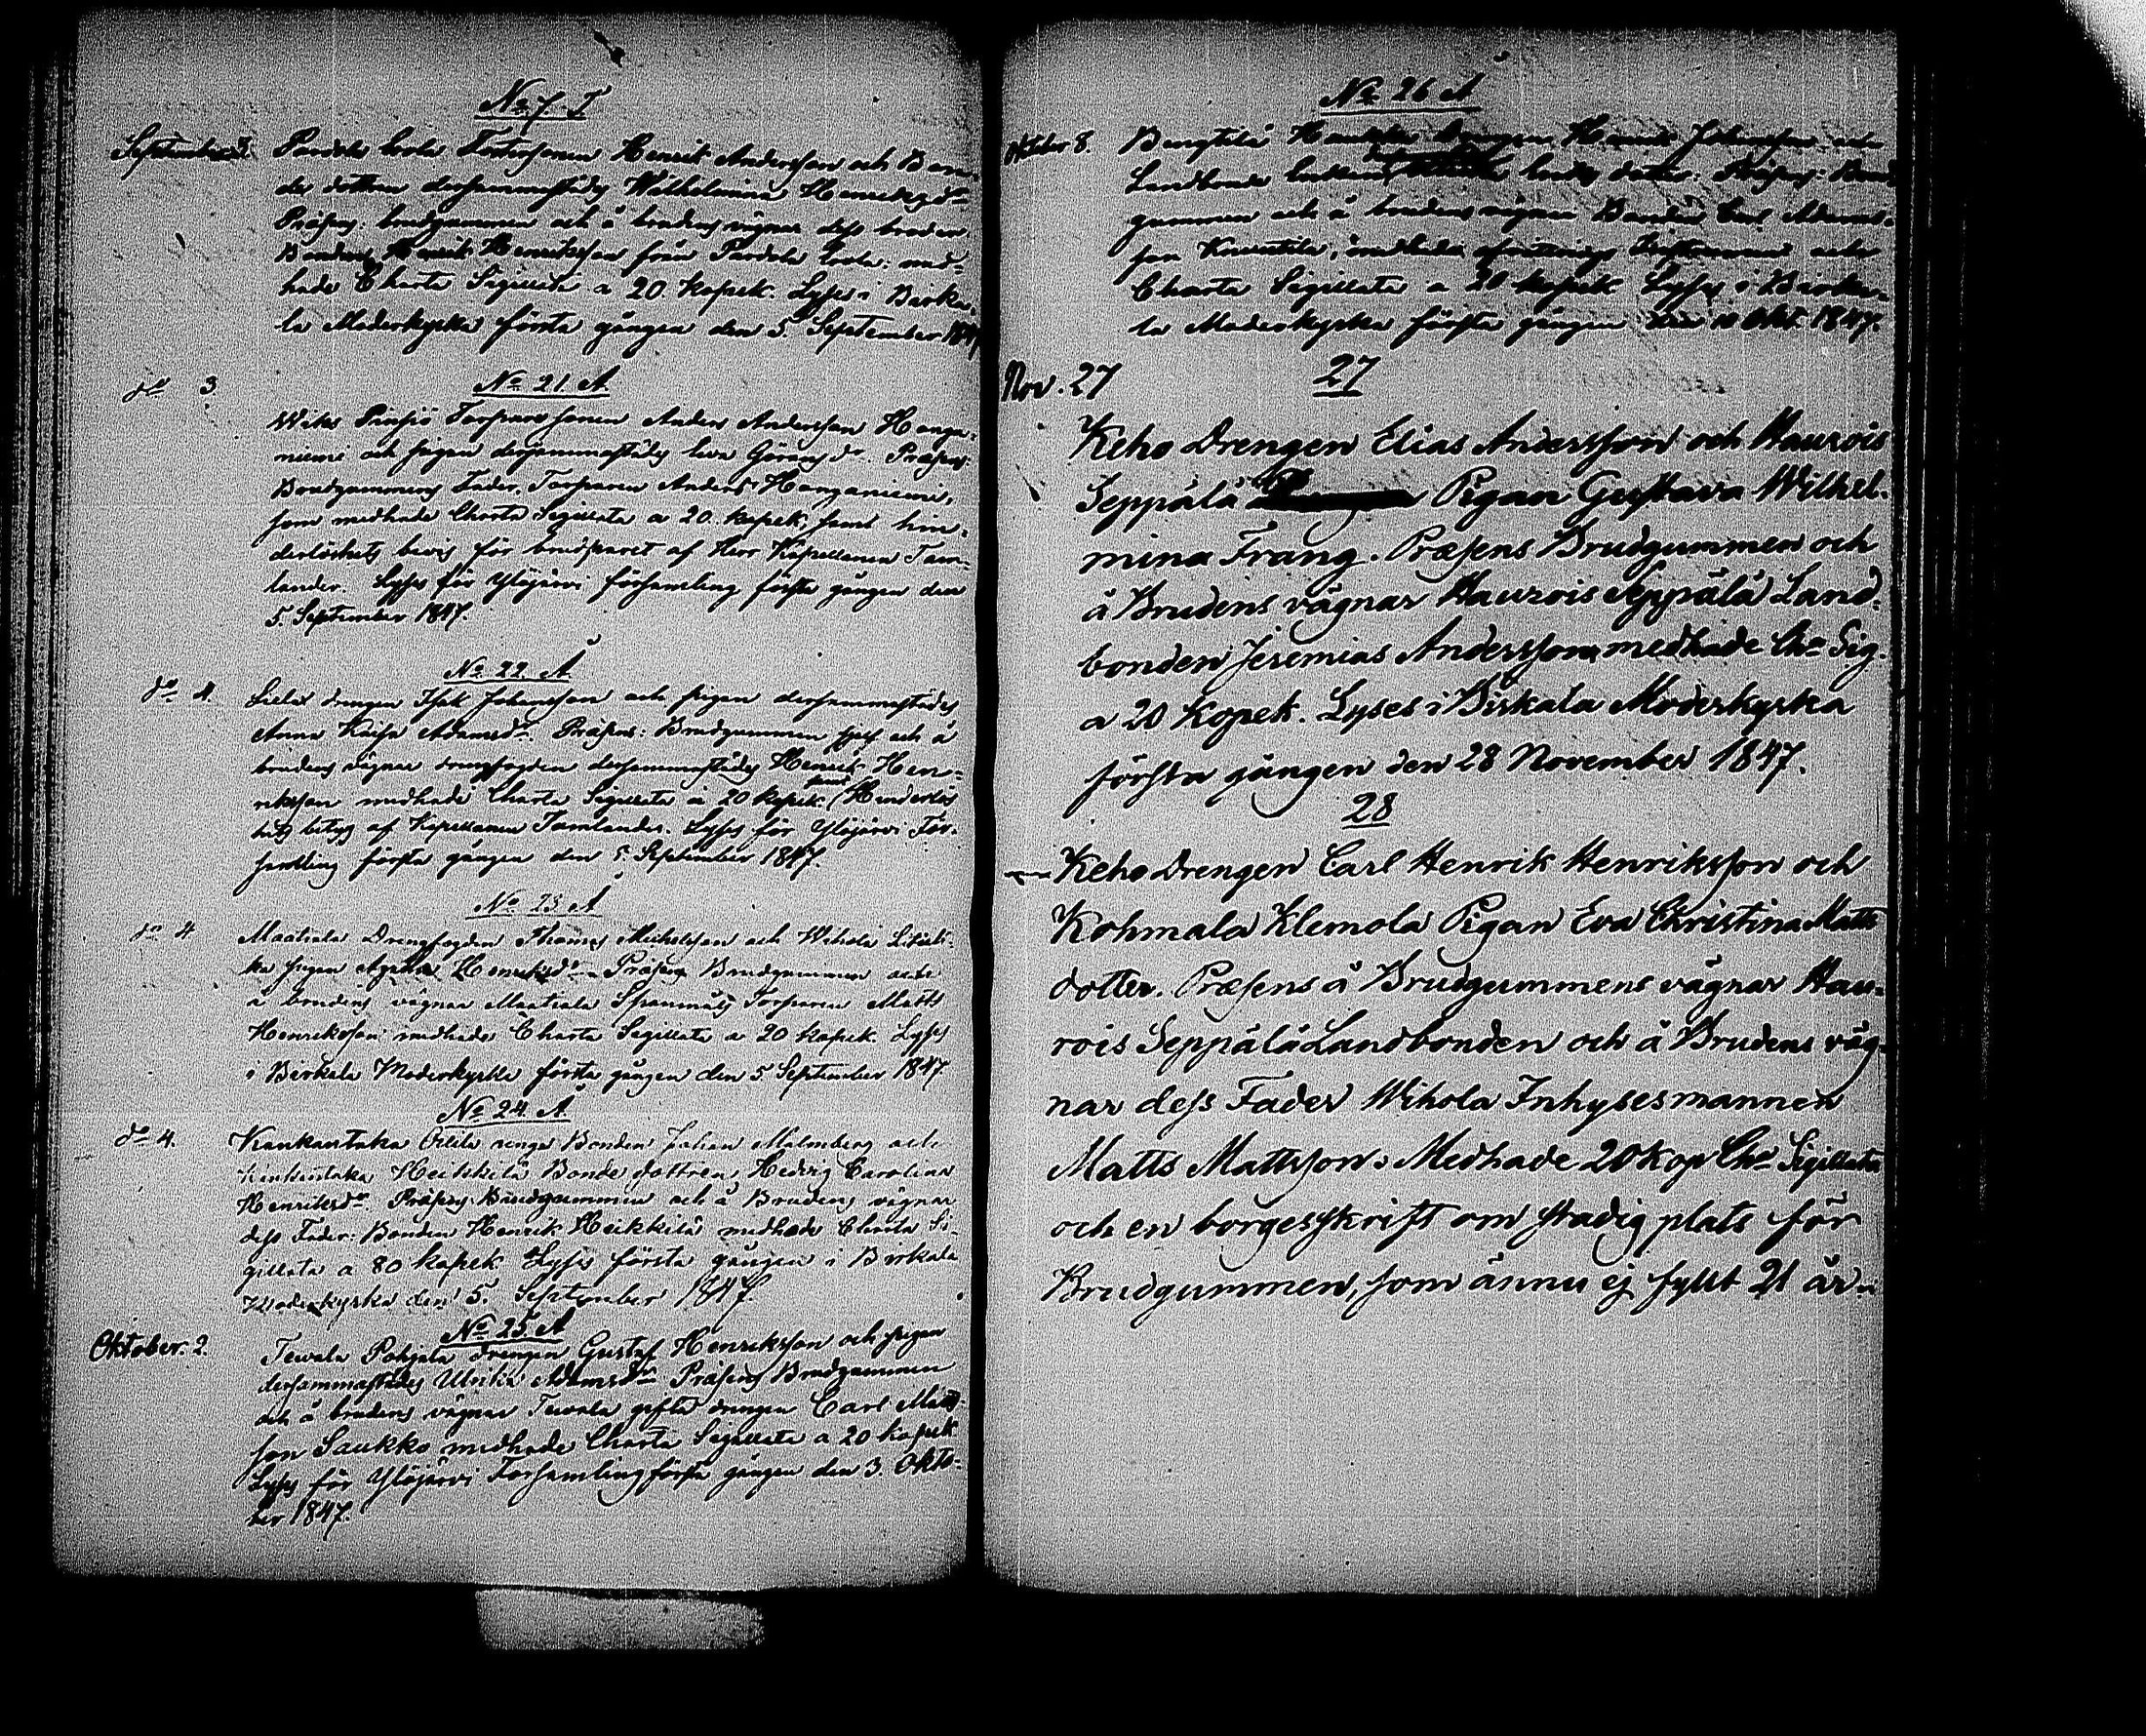 No 7. T
September 3. Pardola Torparsonen Henrik Andersson och Bon-
de dottren dersammastädes Wilhelmina Henricsdr
Præsens: brudgummen och å brudens vägnar dess broder
Bonden Henrik Henriksson från Pardola: med-
hade Charta Sigillata a 20. kopek. Lyses i Birka-
la Moderkyrka första gången den 5. September 1847
No 21. A.
do 3. Torparesonen Anders Andersson Honga-
niemi och pigan dersammastädes Lisa Göransdr. Præsens:
Brudgummens Fader, Torparen Anders Honganiemi,
som medhade Charta Sigillata a 20. kopek, samt hin-
derlöshets bevis för brudparet af Herr Kapellanen Tam-
lander. Lyses för Ylöjärvi församling första gången den
5. September 1847.
No 22. A
do 4. drengen Isak Johansson och pigan dersammastädes
Anna Kaisa Adamsdr. Præsens: Brudgummen sjelf och å
brudens vägnar drengfogden dersammastädes Henrik Hen-
riksson medhade Charta Sigillata á 20 kopek samt Hinderlös
hets betyg af Kapellanen Tamlander. Lyses för Ylöjärvi För-
samling första gången den 5. September 1847.
No 23. A
do 4 Maatiala Drengfogden Thomas Michelsson och Wihola
pigan Agatha Henriksdr Præsens Brudgummen och
å brudens vägnar Maatiala Torparen Matts
Henriksson: medhade Charta Sigillata a 20 kopek. Lyses
i Birkala Moderkyrka första gången den 5. September 1847
No 24. A.
do 4. Kankantaka Ollila unga Bonden Johan Malmberg och
Kankantaka Heikkilä Bonde dottren, Hedvig Carolina
Henriksdr. Præsens Brudgummen och å Brudens vägnar
dess Fader: Bonden Henrik Heikkilä medhade Charta Si-
gillata a 80 kopek Lyses första gången i Birkala
Moderkyrka den 5. September 1847.
No 25. A
Oktober. 2. Tewala Pohjala drengen Gustaf Henriksson och pigan
dersammastädes Ulrika Adamsdr Præsens Brudgummen
och å brudens vägnar Tewala gifta drengen Carl Matts-
son Saukko medhade Charta Sigillata a 20 kopek
Lyses för Ylöjärvi Församling första gången den 3. Okto-
ber 1847.
No 26 A
Oktober 8. drengen Johansson och
Landbonde Præsens: Brud-
gummen och å brudens vägnar Bonden Carl Adams-
son medhade och
Charta Sigillata a 20 kopek Lyses i Birka-
la Moderkyrka första gången den 10 Okt. 1847.
27
Nov. 27
Keho Drengen Elias Andersson och Haurois
Seppälä Pigan Gustava Wilhel-
mina Frang. Præsens Brudgummen och
å Brudens vägnar Haurois Seppälä Land-
bonden Jeremias Andersson, medhade Cha Sig.
a 20 Kopek. Lyses i Birkala Moderkyrka
första gången den 28 November 1847.
28
— Keho Drengen Carl Henrik Henriksson och
Kohmala Klemola Pigan Eva Christina Matts
dotter. Præsens å Brudgummens vägnar Hau-
rois Seppälä Landbonden och å Brudens väg-
nar dess Fader Wihola Inhysesmannen
Matts Mattsson. Medhade 20 kop Cha Sigillata
och en borgesskrift om stadig plats för
Brudgummen, som ännu ej fyllt 21 år.